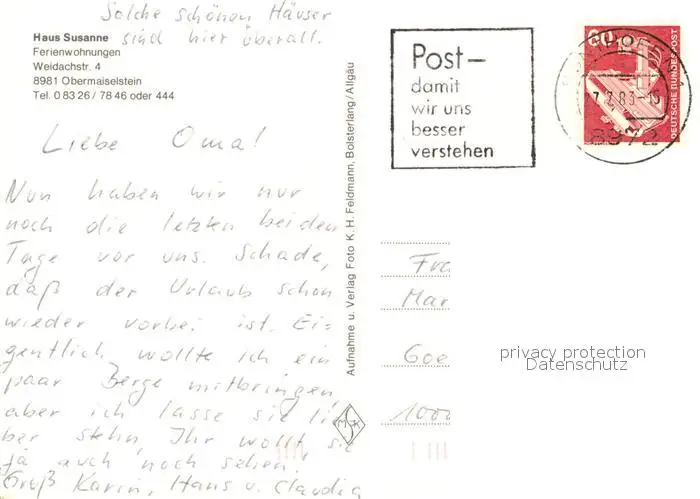 Solche schönen Häuser
sind hier überall.
Haus Susanne
Ferienwohnungen
Weidachstr. 4
8981 Obermaiselstein
Tel. 0 83 26 / 78 46 oder 444
Liebe Oma!
Nun haben wir nur
noch die letzten beiden
Tage vor uns. Schade,
daß der Urlaub schon
wieder vorbei ist. Ei-
gentlich wollte ich ein
paar Berge mitbringen
aber ich lasse sie lie
ber stehn, Ihr wollt sie
ja auch noch sehen.
Gruß Karin, Hans u. Claudia
Aufnahme u. Verlag Foto K. H. Feldmann, Bolsterlang/Allgäu
Post-
damit
wir uns
besser
verstehen
60
DEUTSCHE BUNDESPOST
7.7.83-15
8972
Fra
Mar
Goe
1000
privacy protection
Datenschutz